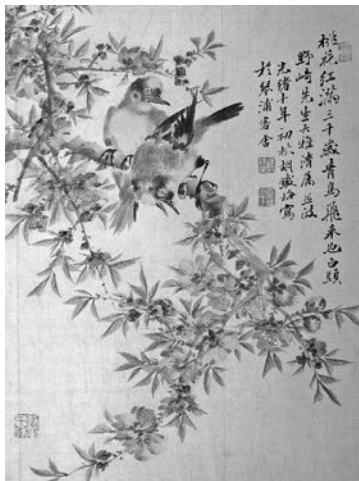 桃花紅滿三千歲青鳥飛来也白頭
野崎先生大雅清属並政
光緒十年初秋胡鐵梅寫
於琴浦客舍